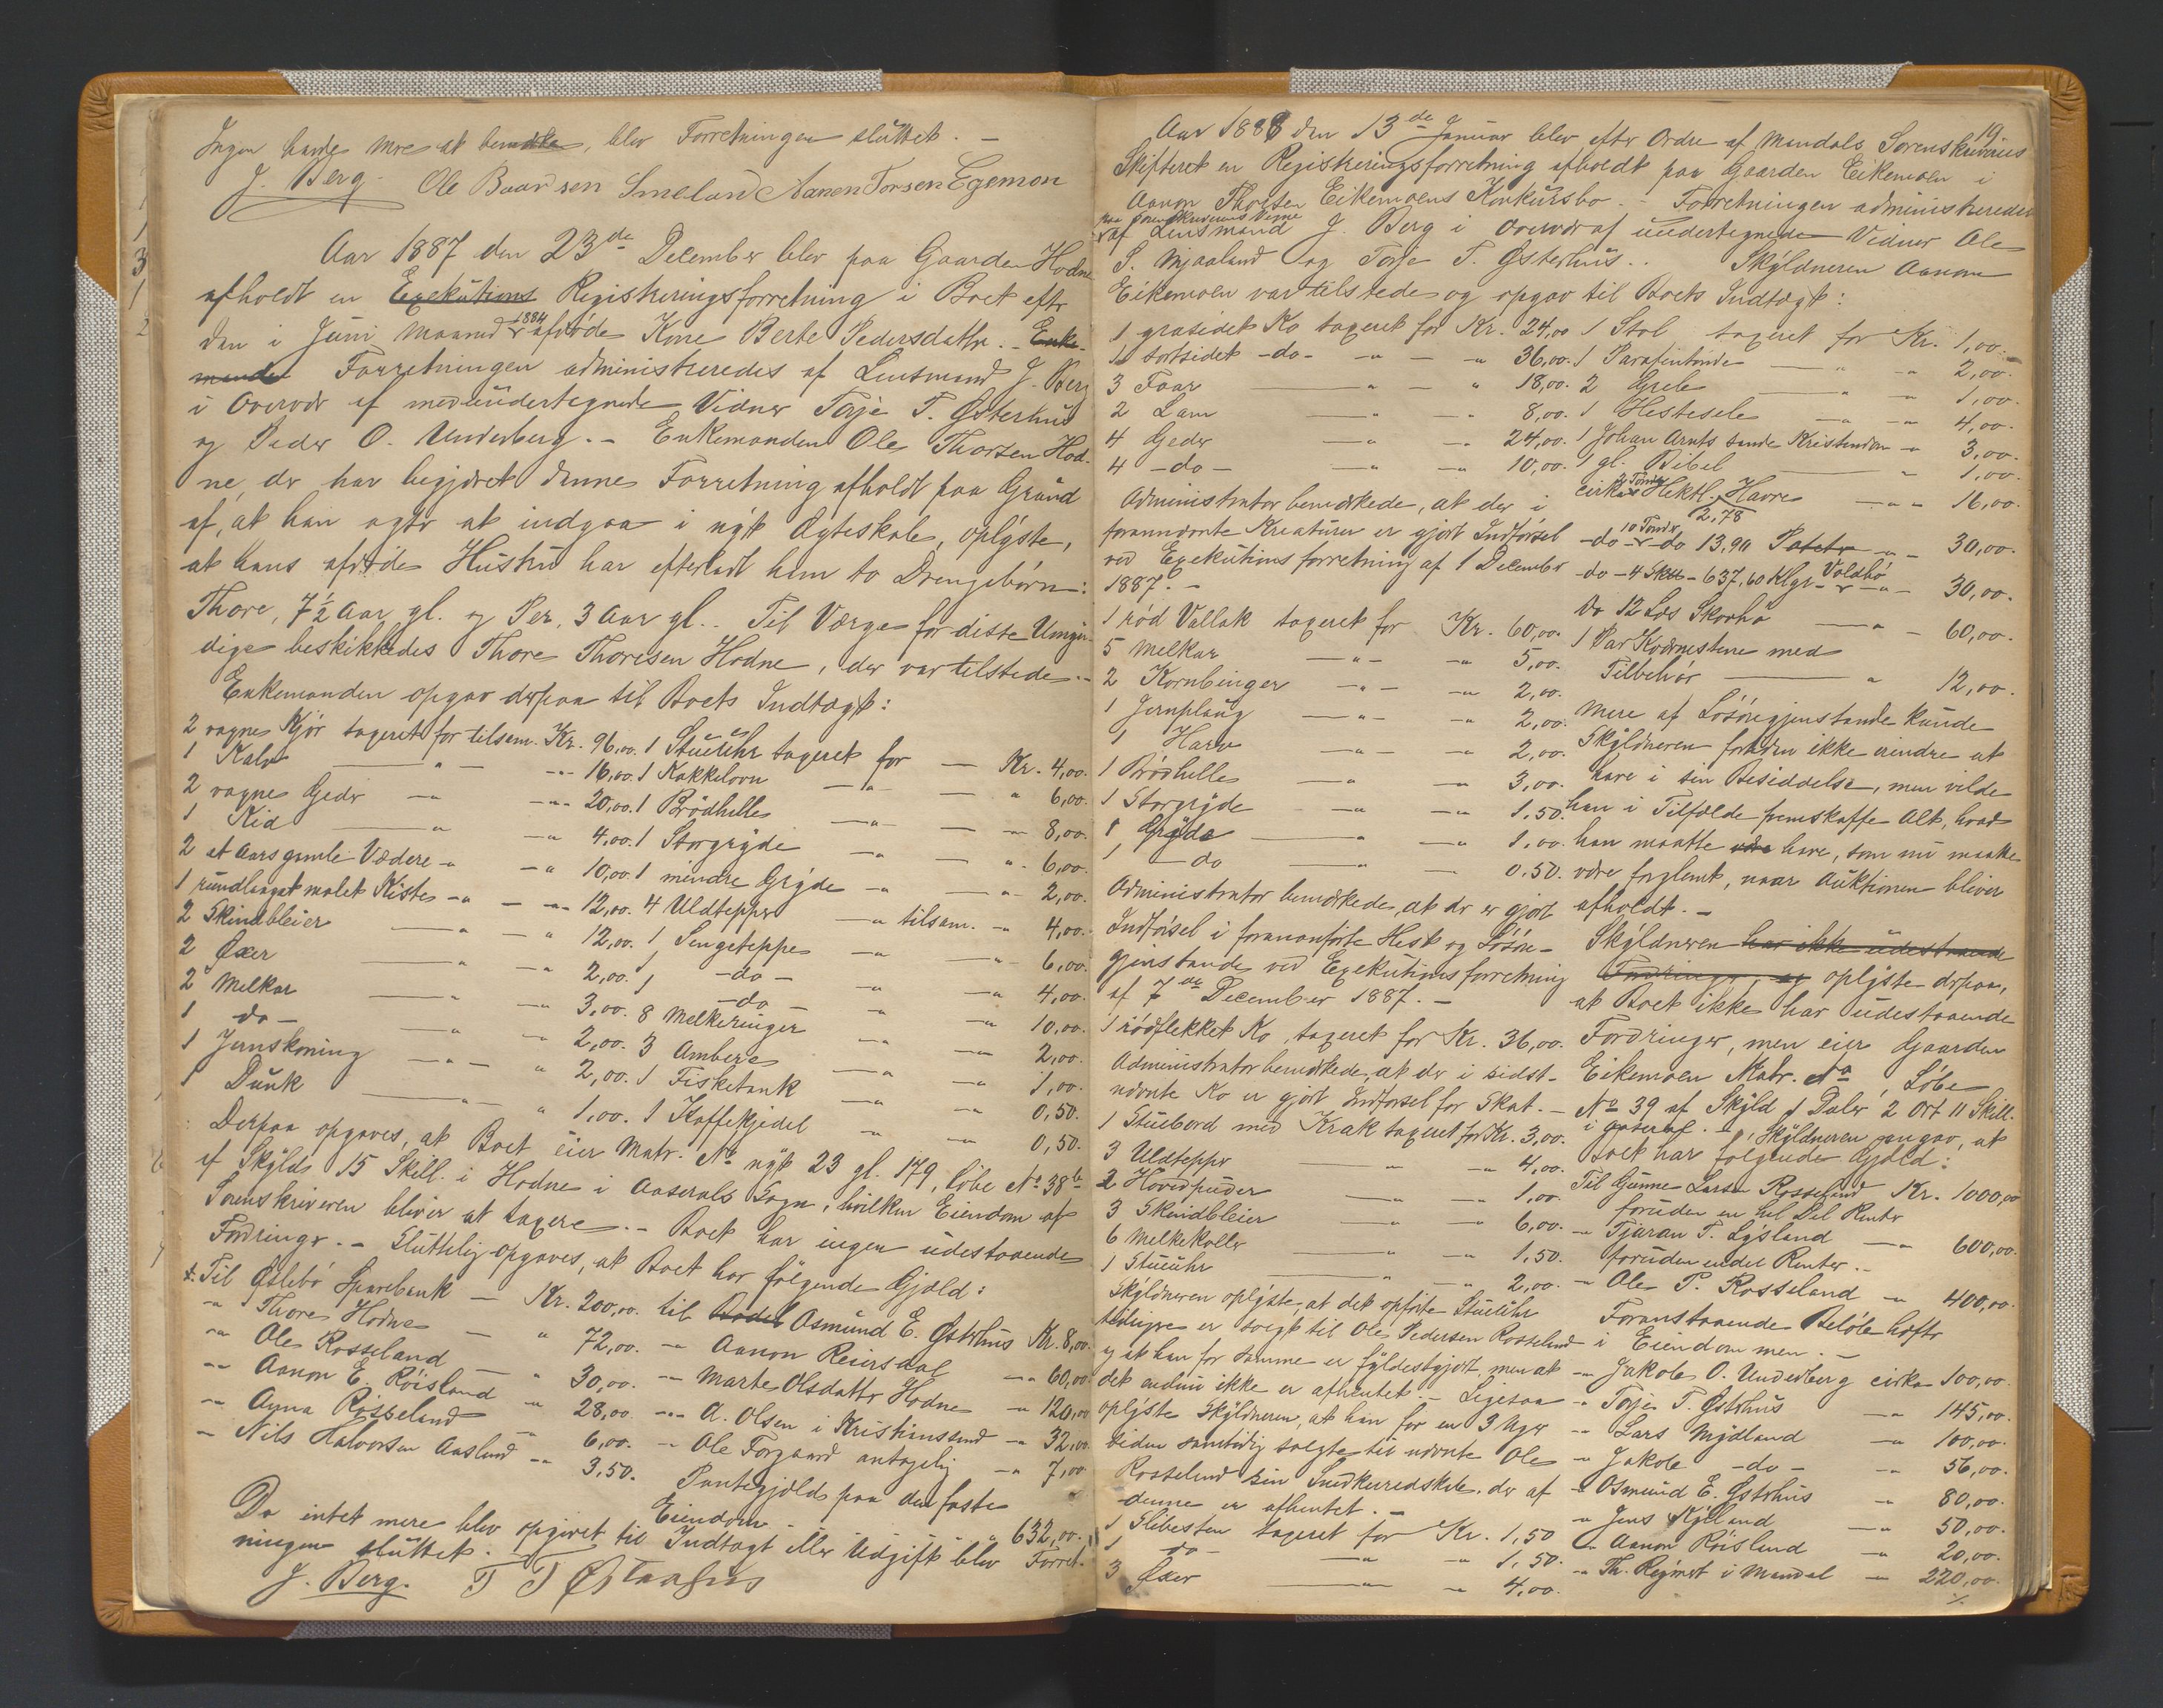 Ingen havde mere at bemærke, blev Forretningen sluttet. –
J. Berg. Ole Baardsen Smeland Aanen Torsen Egemon
Aar 1887 den 23de December blev paa Gaarden Hodne
afholdt en Exekutions Registreringsforretning i Boet efter
den i Juni Maaned 1884 afdøde Kone Berte Pedersdatter. – Enke-
manden Forretningen administreredes af Lensmand J. Berg
i Overvær af medundertegnede Vidner Torje T. Østerhus
og Peder O. Underberg. – Enkemanden Ole Thorsen Hod-
ne, der har begjæret denne Forretning afholdt paa Grund
af, at han agter at indgaa i nyt Ægteskab, oplyste,
at hans afdøde Hustru har efterladt ham to Drengebørn:
Thore, 7½ Aar gl. og Per, 3 Aar gl. . Til Værge for disse Umyn-
dige beskikkedes Thore Thoresen Hodne, der var tilstede. –
Enkemanden opgav derpaa til Boets Indtægt:
2 vagne Kjør taxeret for tilsam. Kr. 96,00.
1 Kalv — " — -"- 16,00.
2 vagne Geder — " — -"- 20,00.
1 Kid — " — " 4,00.
2 et Aars gamle Vædere -"- -" 10,00.
1 rundlaaget malet Kiste -"- — -"- 12,00.
2 Skindbleier — " — -" 12,00.
2 Øxer — " — -" 2,00.
2 Melkar — " — -" 3,00.
1 -do- — " — -" 2,00.
1 Jernskoning — " — " 2,00.
1 Dunk — " — " 1,00.
1 Stueuhr taxeret for — Kr. 4,00.
1 Kakkelovn — " — " 6,00.
1 Brødhelle — " — -" 8,00.
1 Storgryde — " — " 6,00.
1 mindre Gryde -" — -" 2,00.
4 Uldtepper — " tilsam. -" 4,00.
1 Sengeteppe — " — -" 6,00.
1 -do- — " — -" 4,00.
1 -do- — " — -" 10,00.
8 Melkeringer — " — -" 2,00.
3 Ambere — " — -" 1,00.
1 Fisketank — " — -" 0,50.
1 Kaffekjedel — " — -" 0,50.
Derpaa opgaves, at Boet eier Matr. No nyt 23 gl. 179, Løbe No 38b
af Skyld 15 Skill. i Hodne i Aaserals Sogn, hvilken Eiendom af
Sorenskriveren bliver at taxere. – Boet har ingen udestaaende
Fordringer. – Sluttelig opgaves, at Boet har følgende Gjæld:
Til Øslebø Sparebank — Kr. 200,00.
-" Thore Hodne — " 72,00.
-" Ole Rosseland — " 30,00.
-" Aanon E. Røisland " 28,00.
-" Anna Rosseland -" 6,00.
-" Nils Halvorsen Aasland -" 3,50.
til Bodel Osmund E. Østerhus Kr. 8,00.
-" Aanon Reiersdal -" 60,00
-" Marte Olsdatter Hodne -" 120,00
-" A. Olsen i Kristiansand -" 32,00.
-" Ole Forgaard antagelig -" 7,00
Pantegjæld paa den faste
Eiendom — " 632,00.
Da intet mere blev opgivet til Indtægt eller Udgift blev Forret-
ningen sluttet.
J. Berg. T T Østerhus
19.
Aar 1888 den 13de Januar blev efter Ordre af Mandals Sorenskriveries
Skifteret en Registreringsforretning afholdt paa Gaarden Eikemoen i
Aanon Thorsen Eikemoens Konkursbo. – Forretningen administreredes
paa Sorenskriverens Vegne
af Lensmand J. Berg i Overvær af undertegnede Vidner Ole
S. Mjaaland og Torje T. Østerhus. . Skyldneren Aanon
Eikemoen var tilstede og opgav til Boets Indtægt:
1 grasidet Ko taxeret for Kr. 24,00
1 sortsidet -do- -"- — " 36,00.
3 Faar — " — " 18,00.
2 Lam — " — " 8,00.
4 Geder — " — " 24,00.
4 -do- — " — " 10,00.
Administrator bemærkede, at der i
forannævnte Kreaturer er gjort Indførsel
ved Exekutionsforretning af 1 December
1887. –
1 rød Vallak taxeret for Kr. 60,00.
5 Melkar — " — -" 5,00.
2 Kornbinger — " — -" 2,00.
1 Jernplaug — " — -" 2,00.
1 Harv — " — -" 2,00.
1 Brødhelle — " — -" 3,00.
1 Storgryde — " — -" 1,50.
1 Gryde — " — -" 1,00.
1 -do — " — 0.50.
Administrator bemærkede, at der er gjort
Indførsel i forananførte Hest og Løsøre-
gjenstande ved Exekutionsforretning
af 7de December 1887. –
1 rødflekket Ko, taxeret for Kr. 36,00.
Administrator bemærkede, at der i sidst-
nævnte Ko er gjort Indførsel for Skat. –
1 Stuebord med Krak taxeret for Kr. 3,00.
3 Uldtepper — " — -" 4,00.
2 Hovedpuder — " — -" 1,00.
3 Skindbleier — " — -" 6,00.
6 Melkekoller — " — -" 1,50.
1 Stueuhr — " — -" 2,00.
Skyldneren oplyste, at det opførte Stueuhr
tidligere er solgt til Ole Pedersen Rosseland
og at han for samme er fyldestgjort, men at
det endnu ikke er afhentet. – Ligesaa
oplyste Skyldneren, at han for en 3 Uger
siden samtidig solgte til nævnte Ole
Rosseland sin Snedkerredskab, der af
denne er afhentet. –
1 Slibesten taxeret for Kr. 1,50
1 -do- — " — " 1,50.
3 Øxer — " — " 4,00.
1 Stol taxeret for Kr. 1,00.
1 Parafintønde — " — " 2,00.
2 Greb — " — " 1,00.
1 Hestesele — " — " 4,00.
1 Johan Arnts sande Kristendom -" 3,00.
1 gl. Bibel — " 1,00.
2 Tønder
cirka Hektl. Havre — " — 16,00.
2,78
10 Tønder
-do — do 13,90 Poteter -" – 30,00.
-do – 4 Sk℔ – 637,60 Klgr. Voldhø -" – 30,00.
Do 12 Læs Skovhø — " – 60,00.
1 Par Kværnestene med
Tilbehør — " 12,00.
Mere af Løsøregjenstande kunde
Skyldneren fortiden ikke erindre at
have i sin Besiddelse, men vilde
han i Tilfælde fremskaffe Alt, hvad
han maatte være have, som nu maatte
være forglemt, naar Auktionen bliver
afholdt. –
Skyldneren har ikke udestaaende
Fordringer, og oplyste derpaa,
at Boet ikke har udestaaende
Fordringer, men eier Gaarden
Eikemoen Matr. No , Løbe
No 39 af Skyld 1 Daler 2 Ort 11 Skill.
i Aaseral. – Skyldneren opgav, at
Boet har følgende Gjæld:
Til Gunne Larsen Rosseland Kr. 1000,00
foruden en hel Del Renter
-" Tjøran T. Lysland -" 600,00.
foruden endel Renter. –
-" Ole P. Rosseland -" 400,00.
Foranstaaende Beløb hefter
i Eiendommen. –
-" Jakob O. Underberg cirka 100,00.
-" Torje T. Østerhus -" 145,00.
-" Lars Mydland -" 100,00.
-" Jakob -do- -" 56,00.
-" Osmund E. Østerhus -" 80,00.
-" Jens Kyland -" 50,00.
-" Aanon Røisland -" 20,00.
-" Th. Regevst i Mandal -" 220,00.